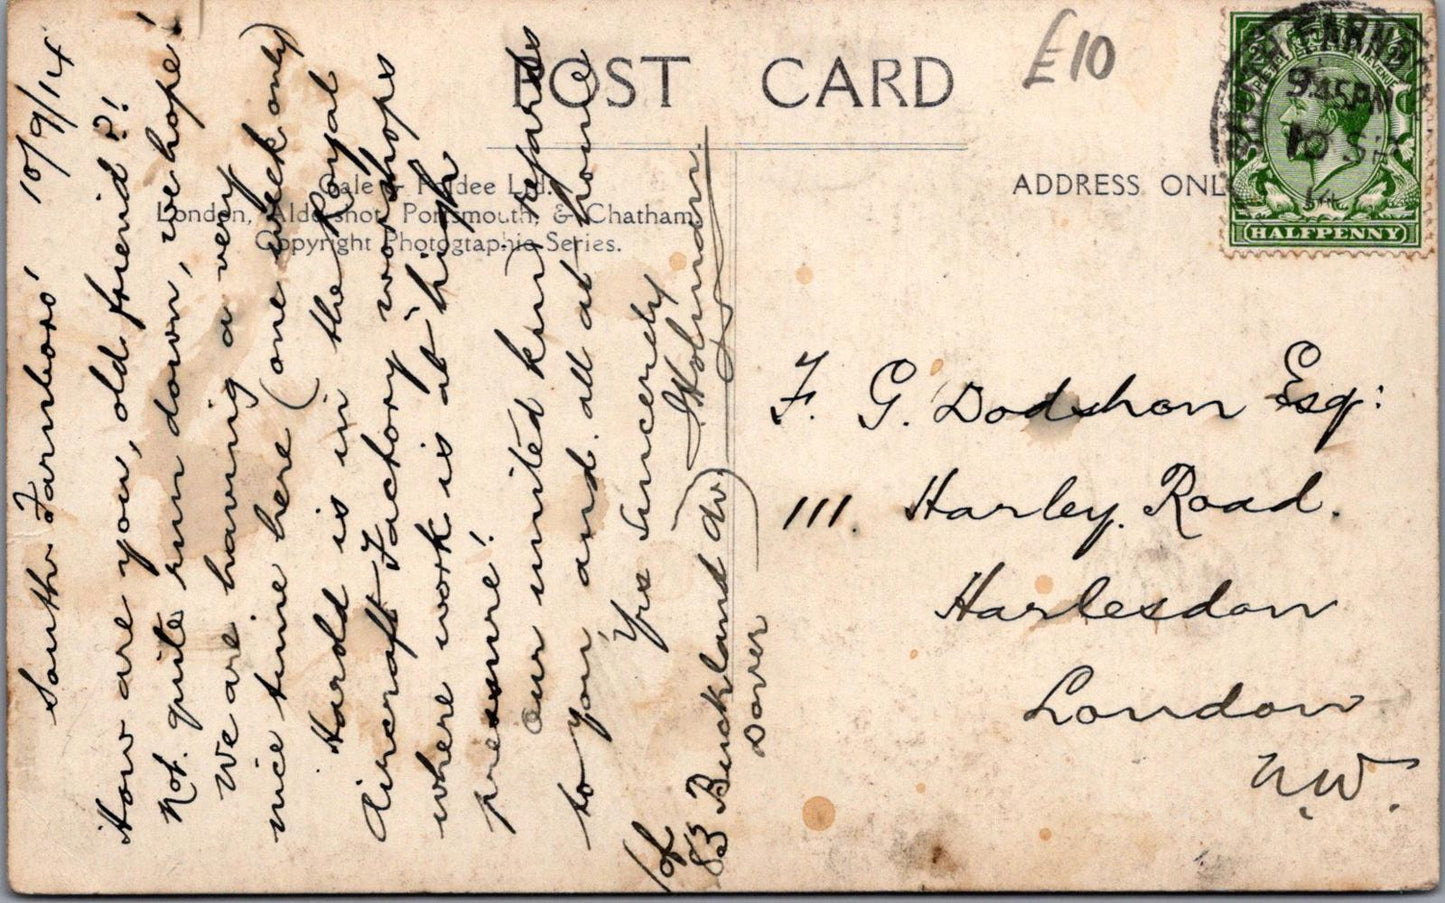 POST CARD
£10
Gale & Polden Ltd.
London, Aldershot, Portsmouth, & Chatham.
Copyright Photographic Series.
ADDRESS ONL
SOUTH FARNBO
9.45PM
10 SP
14
HALFPENNY
South Farnboro' 10/9/14
How are you, old friend?!
Not quite run down, we hope!
We are having a very
nice time here (one week only)
Harold is in the Royal
Aircraft Factory workshops
where work is at "high
pressure!
Our united kind regards
to you and all at home
Yrs Sincerely
(of
83 Buckland Av.)
Dover
F. G. Dodshon Esq:
111. Harley. Road.
Harlesdon
London
N.W.